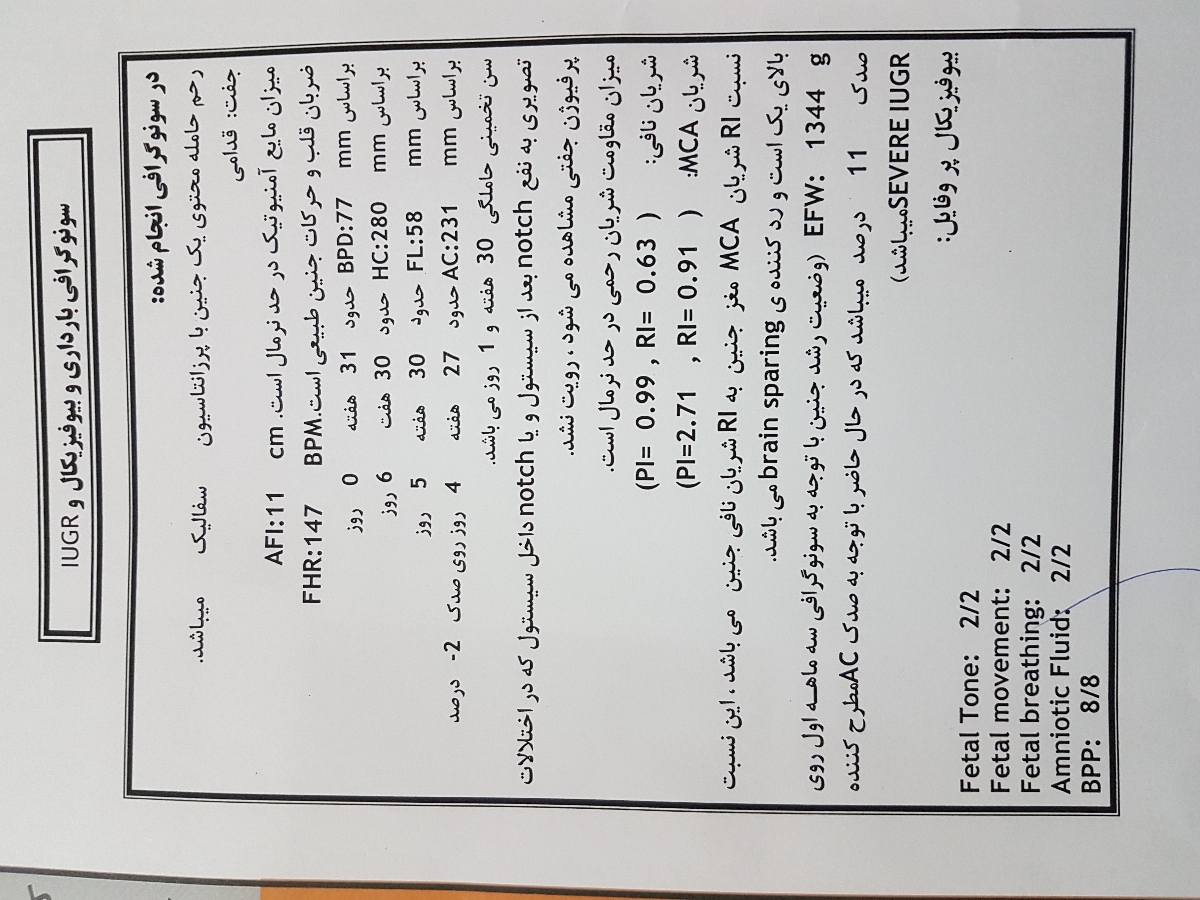 سونوگرافی بارداری و بیوفیزیکال و IUGR
در سونوگرافی انجام شده:
رحم حامله محتوی یک جنین با پرزانتاسیون سفالیک میباشد.
جفت: قدامی
میزان مایع آمنیوتیک در حد نرمال است. AFI:11 cm
ضربان قلب و حرکات جنین طبیعی است. FHR:147 BPM
براساس BPD:77 mm حدود 31 هفته 0 روز
براساس HC:280 mm حدود 30 هفت 6 روز
براساس FL:58 mm حدود 30 هفته 5 روز
براساس AC:231 mm حدود 27 هفته 4 روز روی صدک 2- درصد
سن تخمینی حاملگی 30 هفته و 1 روز می باشد.
تصویری به نفع notch بعد از سیستول و یا notch داخل سیستول که در اختلالات
پرفیوژن جفتی مشاهده می شود، رویت نشد.
میزان مقاومت شریان رحمی در حد نرمال است.
شریان نافی: (PI= 0.99 , RI= 0.63 )
شریان MCA: (PI=2.71 , RI= 0.91 )
نسبت RI شریان MCA مغز جنین به RI شریان نافی جنین می باشد، این نسبت
بالای یک است و رد کننده ی brain sparing می باشد.
EFW: 1344 g (وضعیت رشد جنین با توجه به سونوگرافی سه ماهه اول روی
صدک 11 درصد میباشد که در حال حاضر با توجه به صدک AC مطرح کننده
SEVERE IUGR میباشد)
بیوفیزیکال پروفایل:
Fetal Tone: 2/2
Fetal movement: 2/2
Fetal breathing: 2/2
Amniotic Fluid: 2/2
BPP: 8/8